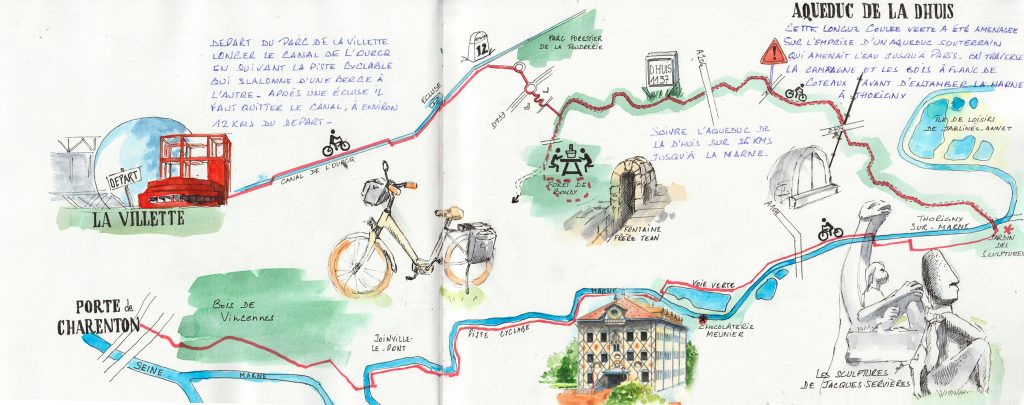 DEPART DU PARC DE LA VILLETTE
LONGER LE CANAL DE L'OURCQ
EN SUIVANT LA PISTE CYCLABLE
QUI SLALOMNE D'UNE BERGE À
L'AUTRE. APRÈS UNE ÉCLUSE IL
FAUT QUITTER LE CANAL, À ENVIRON
12 KMS DU DEPART.
DÉPART
LA VILLETTE
CANAL DE L'OURCQ
ECLUSE
12
PARC FORESTIER
DE LA POUDRERIE
D933
FORÊT DE
BONDY
DHUIS
1137
A104
SUIVRE L'AQUEDUC DE
LA D'HUIS SUR 26 KMS
JUSQU'À LA MARNE.
FONTAINE
FRÈRE JEAN
AQUEDUC DE LA DHUIS
CETTE LONGUE COULÉE VERTE A ÉTÉ AMENAGÉE
SUR L'EMPRISE D'UN AQUEDUC SOUTERRAIN
QUI AMENAIT L'EAU JUSQU'À PARIS. ON TRAVERSE
LA CAMPAGNE ET LES BOIS À FLANC DE
COTEAUX AVANT D'ENJAMBER LA MARNE
À THORIGNY
ÎLE DE LOISIRS
DE JABLINES-ANNET
A104
THORIGNY
SUR-MARNE
JARDIN
DES
SCULPTURES
LES SCULPTURES
DE JACQUES SERVIÈRES
VOIE VERTE
CHOCOLATERIE
MEUNIER
MARNE
PISTE CYCLABE
JOINVILLE-
LE-PONT
BOIS DE
VINCENNES
PORTE de
CHARENTON
SEINE
MARNE